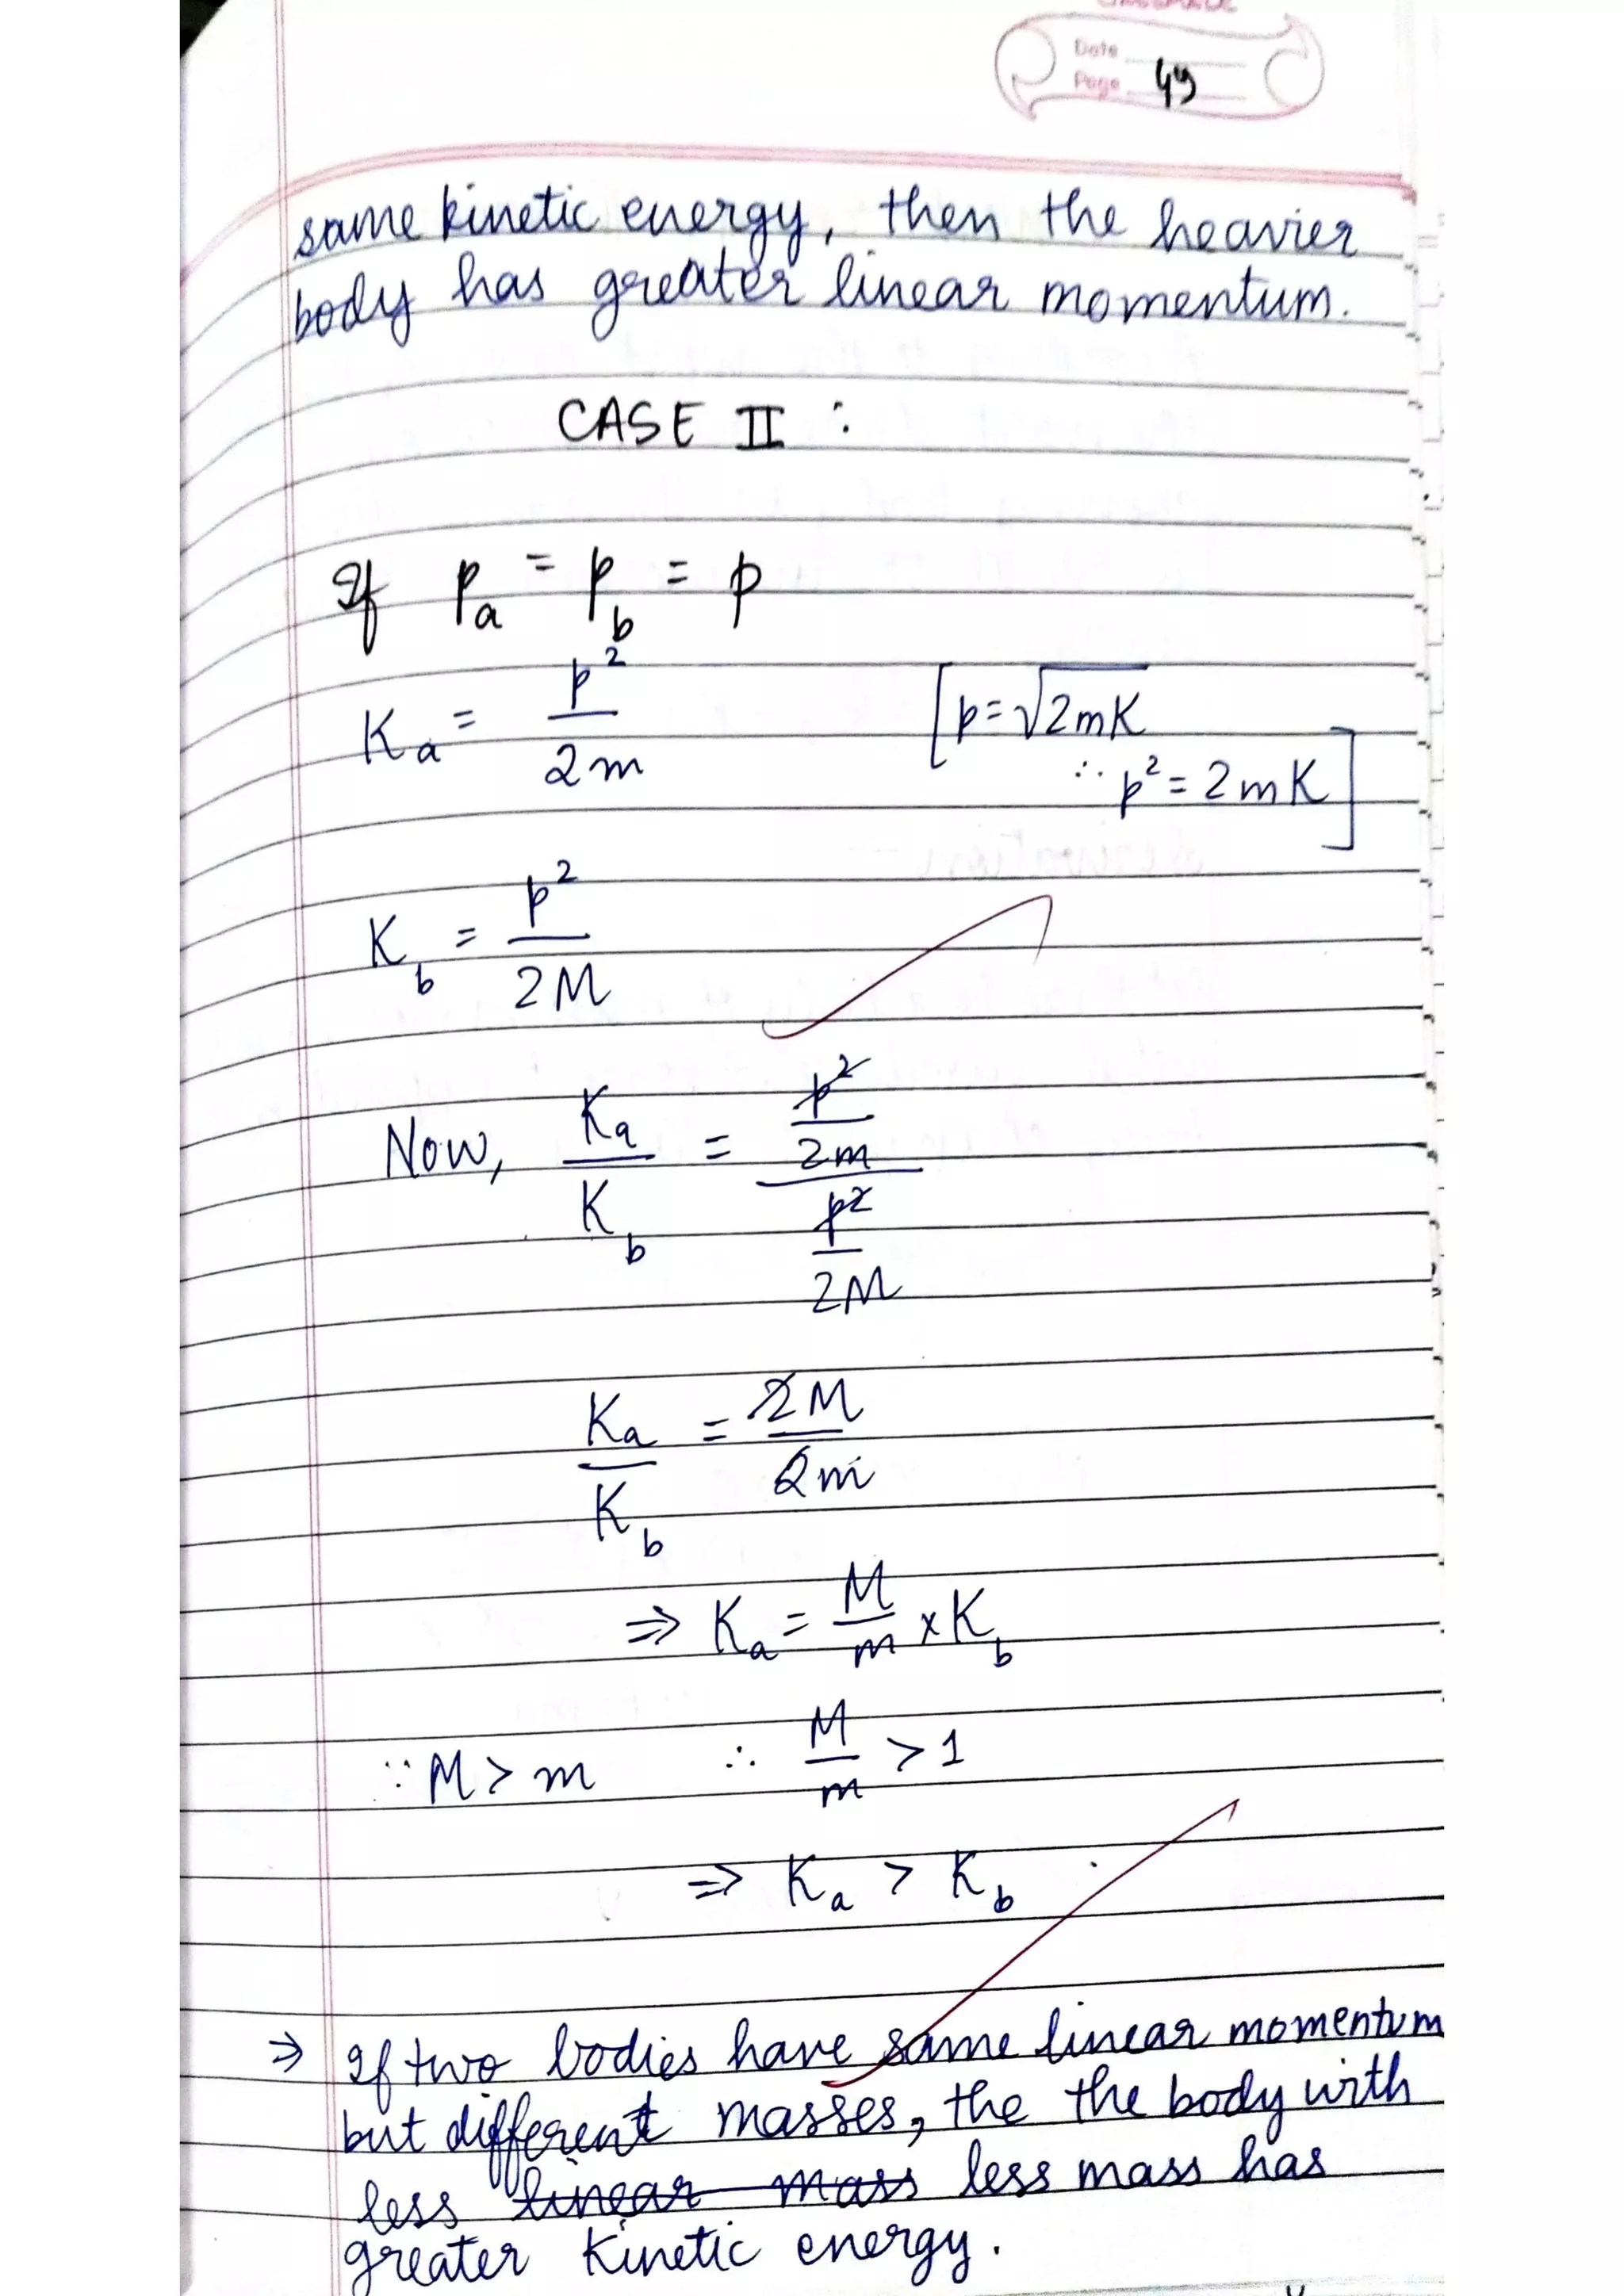 Date
Page 49
same kinetic energy, then the heavier
body has greater linear momentum.
CASE II :
If p_a = p_b = p
K_a = p²/2m [p = √2mK
∴ p² = 2mK]
K_b = p²/2M
Now, K_a/K_b = (p²/2m)/(p²/2M)
K_a/K_b = 2M/2m
⇒ K_a = M/m × K_b
∵ M > m ∴ M/m > 1
⇒ K_a > K_b
⇒ If two bodies have same linear momentum
but different masses, the the body with
less linear mass less mass has
greater kinetic energy.